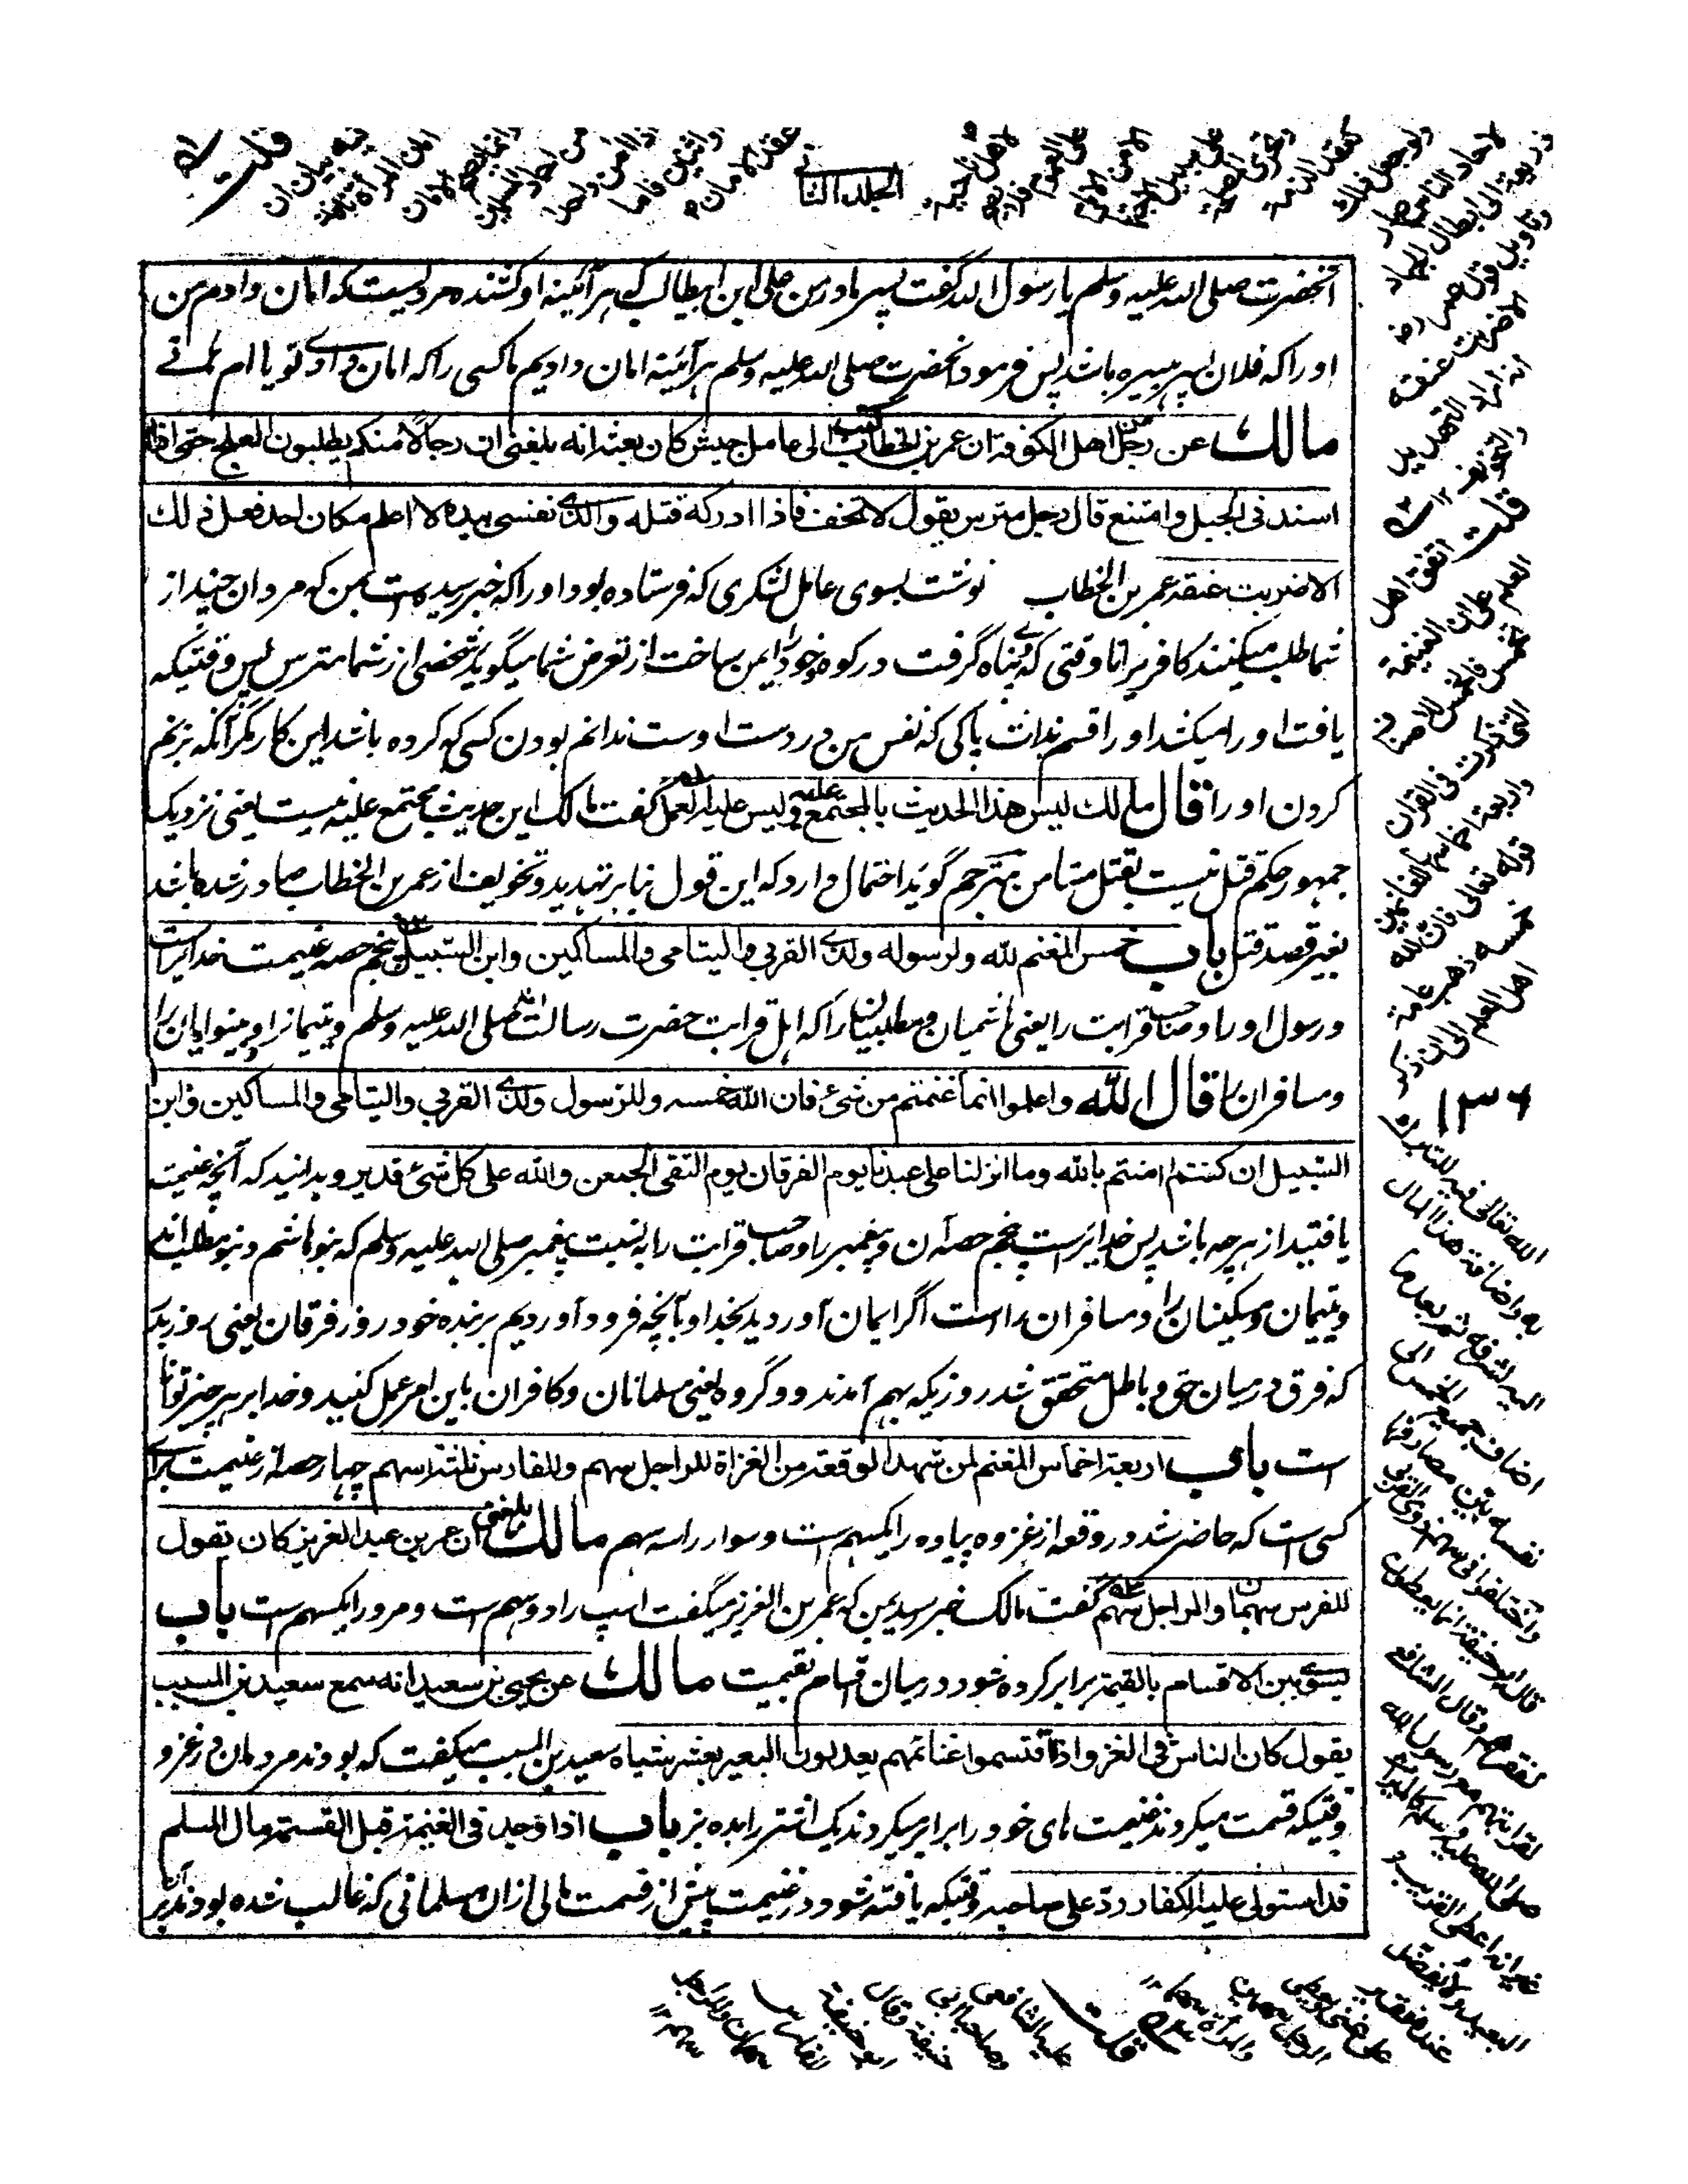 الجلد الثانی
آنحضرت صلی الله علیه وسلم یا رسول الله گفت پسر مادر من علی ابن ابیطالب که هر آئینه او کشنده مردیست که امان دادم من
او را که فلان پسر هبیره باشد پس فرمود آنحضرت صلی الله علیه وسلم هر آئینه امان دادیم ما کسی را که امان دادی تو یا ام هانی
مالك عن رجل من اهل الکوفة ان عمر بن الخطاب کتب الی عامل جیش کان بعثه انه بلغنی ان رجالا منکم یطلبون العلج حتی اذا
اسند فی الجبل وامتنع قال رجل مترس یقول لا تخف فاذا ادرکه قتله والذی نفسی بیده لا اعلم مکان احد فعل ذلك
الا ضربت عنقه عمر بن الخطاب نوشت بسوی عامل لشکری که فرستاده بود او را که خبر رسیده است بمن که مردان چند از
شما طلب میکنند کافر را تا وقتی که پناه گرفت در کوه و خود را ایمن ساخت از تعرض شما میگوید شخصی از شما مترس پس وقتیکه
یافت او را میکشد او را قسم بذات پاکی که نفس من در دست اوست ندانم بودن کسی که کرده باشد این کار مگر آنکه بزنم
کردن او را قال مالك لیس هذا الحدیث بالمجتمع علیه ولیس علیه العمل گفت مالک این حدیث مجتمع علیه نیست یعنی نزدیک
جمهور حکم قتل نیست بقتل مستامن مترجم گوید احتمال دارد که این قول بنا بر تهدید و تخویف از عمر بن الخطاب صادر شده باشد
بغیر قصد قتل باب خمس المغنم لله ولرسوله ولذی القربی والیتامی والمساکین وابن السبیل پنجم حصه غنیمت خدا راست
ورسول او را وصاحب قرابت را یعنی هاشمیان ومطلبیان را که اهل قرابت حضرت رسالت اند صلی الله علیه وسلم ویتیمان را وبینوایان را
ومسافران را قال الله واعلموا انما غنمتم من شیء فان لله خمسه وللرسول ولذی القربی والیتامی والمساکین وابن
السبیل ان کنتم امنتم بالله وما انزلنا علی عبدنا یوم الفرقان یوم التقی الجمعن والله علی کل شیء قدیر وبدانید که آنچه غنیمت
یافتید از هر چه باشد پس خدا راست پنجم حصه آن وپیغمبر را وصاحب قرابت را به نسبت پیغمبر صلی الله علیه وسلم که بنو هاشم وبنو مطلب اند
ویتیمان ومسکینان را ومسافران راست اگر ایمان آوردید بخدا وبآنچه فرود آوردیم بر بنده خود روز فرقان یعنی روز بدر
که فرق درمیان حق وباطل متحقق شد روزیکه بهم آمدند دو گروه یعنی مسلمانان وکافران باین امر عمل کنید وخدا بر هر چیز توانا
است باب اربعة اخماس المغنم لمن شهد الوقعة من الغزاة للراجل سهم وللفارس ثلثة اسهم چهار حصه از غنیمت برای
کسی است که حاضر شد در وقعه از غزوه پیاده را یکسهم است وسوار را سه سهم مالك بلغنی ان عمر بن عبد العزیز کان یقول
للفرس سهمان وللراجل سهم گفت مالک خبر رسید بمن که عمر بن العزیز میگفت اسپ را دو سهم است ومرد را یکسهم است باب
یسوی بین الاقسام بالقیمة برابر کرده شود درمیان اقسام بقیمت مالك عن یحیی بن سعید انه سمع سعید بن المسیب
یقول کان الناس فی الغزو اذا اقتسموا غنائمهم یعدلون البعیر بعشر شیاه سعید بن المسیب میگفت که بودند مردمان در غزو
وقتیکه قسمت میکردند غنیمت های خود را برابر میکردند یک اشتر را بده بز باب اذا وجد فی الغنیمة قبل القسمة مال المسلم
قد استولی علیه الکفار رد علی صاحبه وقتیکه یافته شود در غنیمت پیش از قسمت مالی ازان مسلمانی که غالب شده بودند بر
قلت
اتفق اهل
العلم علی ان الغنیمة
تخمس فالخمس للاصناف
التی ذکرت فی القران
واربعة اخماسها للغانمین
قوله تعالی فان لله
خمسه ذهب عامة
اهل العلم الی ان ذکر
۱۳۶
الله تعالی فیه للتبرك
به واضافة هذا المال
الیه لشرفه ثم بعد ما
اضاف جمیع الخمس الی
نفسه بین مصارفها
واختلفوا فی سهم ذوی القربی
قال ابو حنیفة انما یعطون
لفقرهم وقال الشافعی
لقرابتهم من رسول الله
صلی الله علیه وسلم کالمیراث
غیر انه اعطی القریب و
البعید ولا یفضل